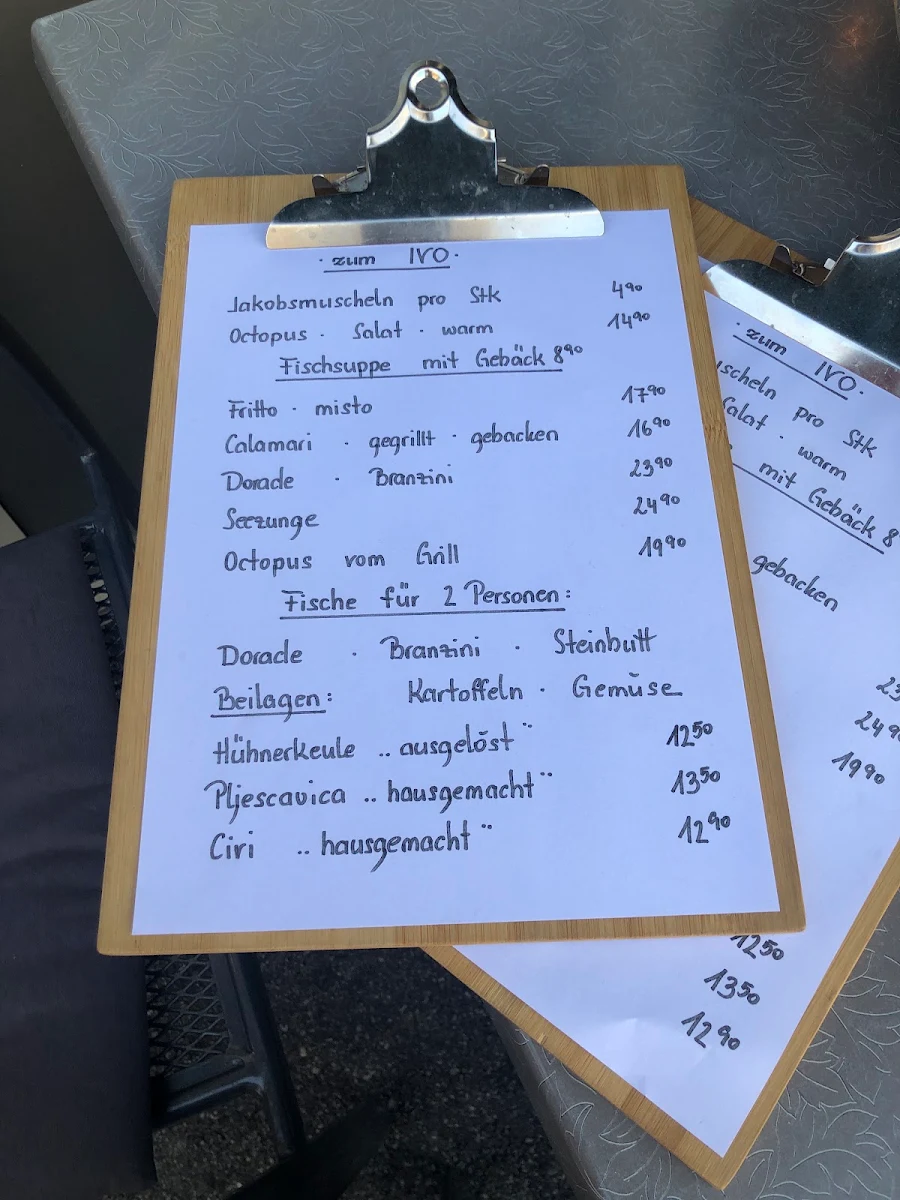 · zum IVO ·
Jakobsmuscheln pro Stk 4⁹⁰
Octopus · Salat · warm 14⁹⁰
Fischsuppe mit Gebäck 8⁹⁰
Fritto · misto 17⁹⁰
Calamari · gegrillt · gebacken 16⁹⁰
Dorade · Branzini 23⁹⁰
Seezunge 24⁹⁰
Octopus vom Grill 19⁹⁰
Fische für 2 Personen:
Dorade · Branzini · Steinbutt
Beilagen: Kartoffeln · Gemüse
Hühnerkeule „ausgelöst" 12⁵⁰
Pljescavica „hausgemacht" 13⁵⁰
Ciri „hausgemacht" 12⁹⁰
· zum IVO ·
scheln pro Stk
Salat · warm
mit Gebäck 8
gebacken
23
24⁹⁰
19⁹⁰
12⁵⁰
13⁵⁰
12⁹⁰